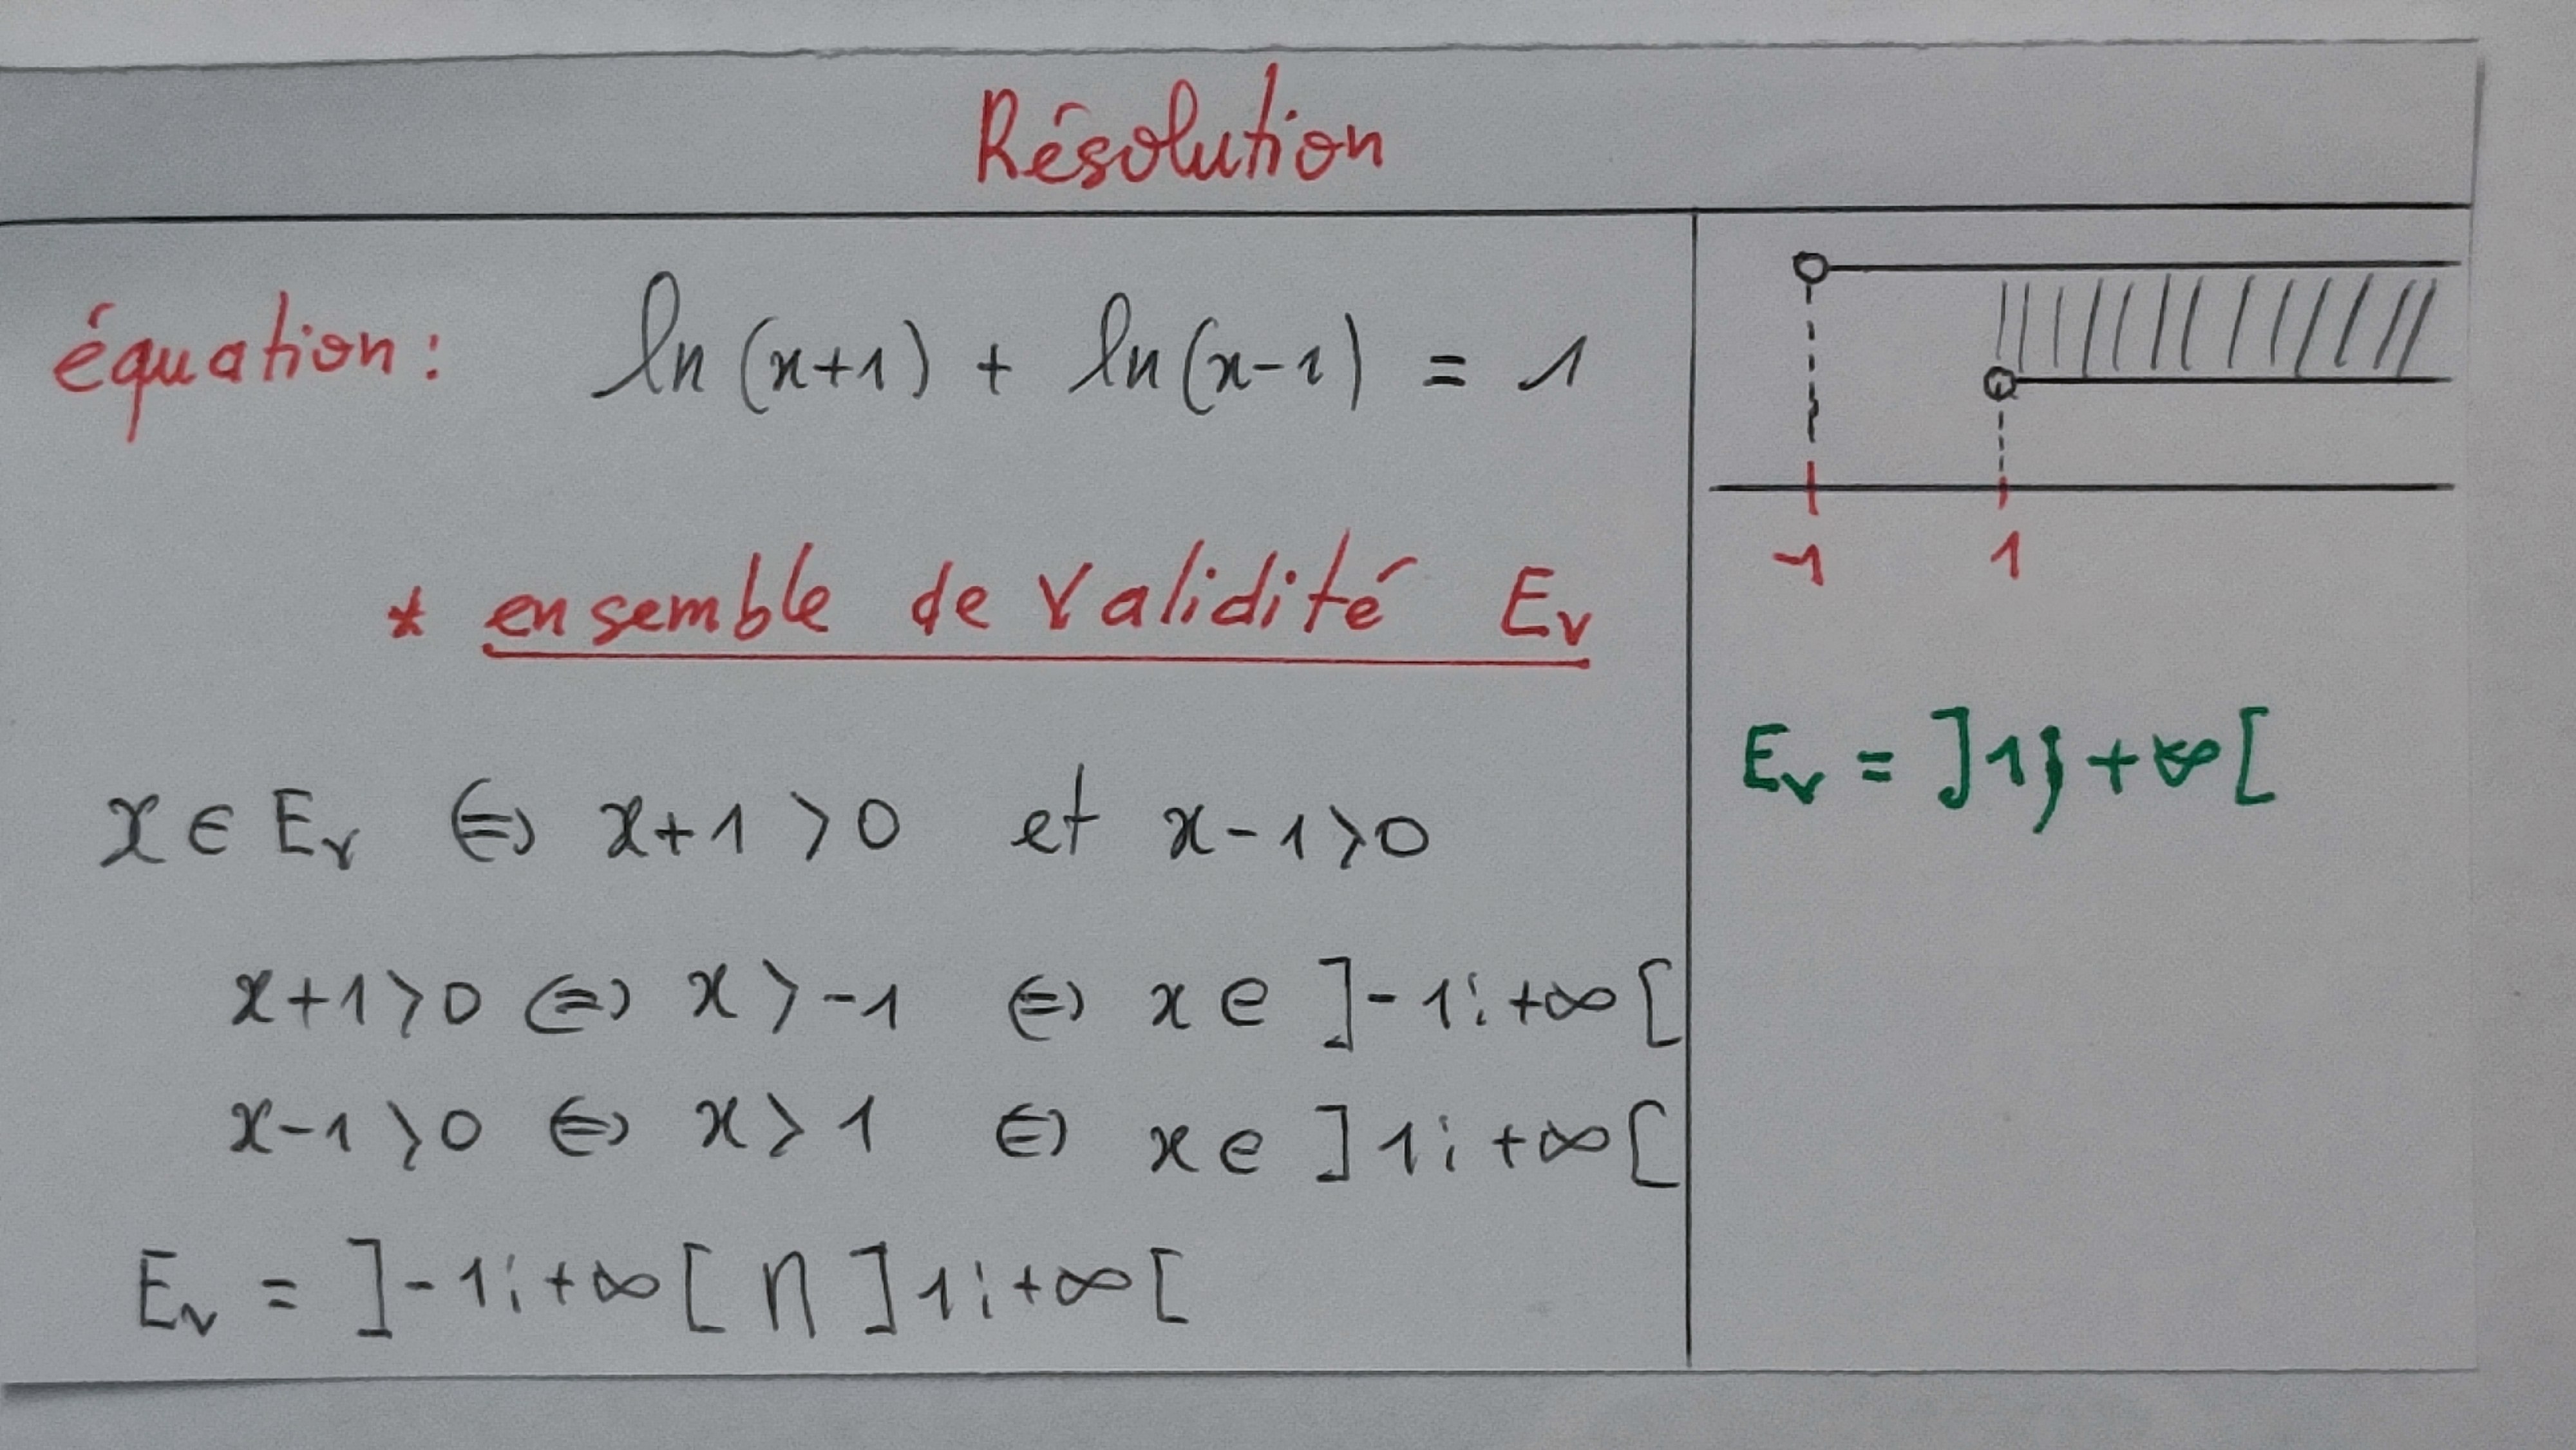 Résolution
équation : ln(x+1) + ln(x-1) = 1
* ensemble de validité Ev
x ∈ Ev ⇔ x+1 > 0 et x-1 > 0
x+1 > 0 ⇔ x > -1 ⇔ x ∈ ]-1; +∞[
x-1 > 0 ⇔ x > 1 ⇔ x ∈ ]1; +∞[
Ev = ]-1; +∞[ ∩ ]1; +∞[
-1 1
Ev = ]1; +∞[